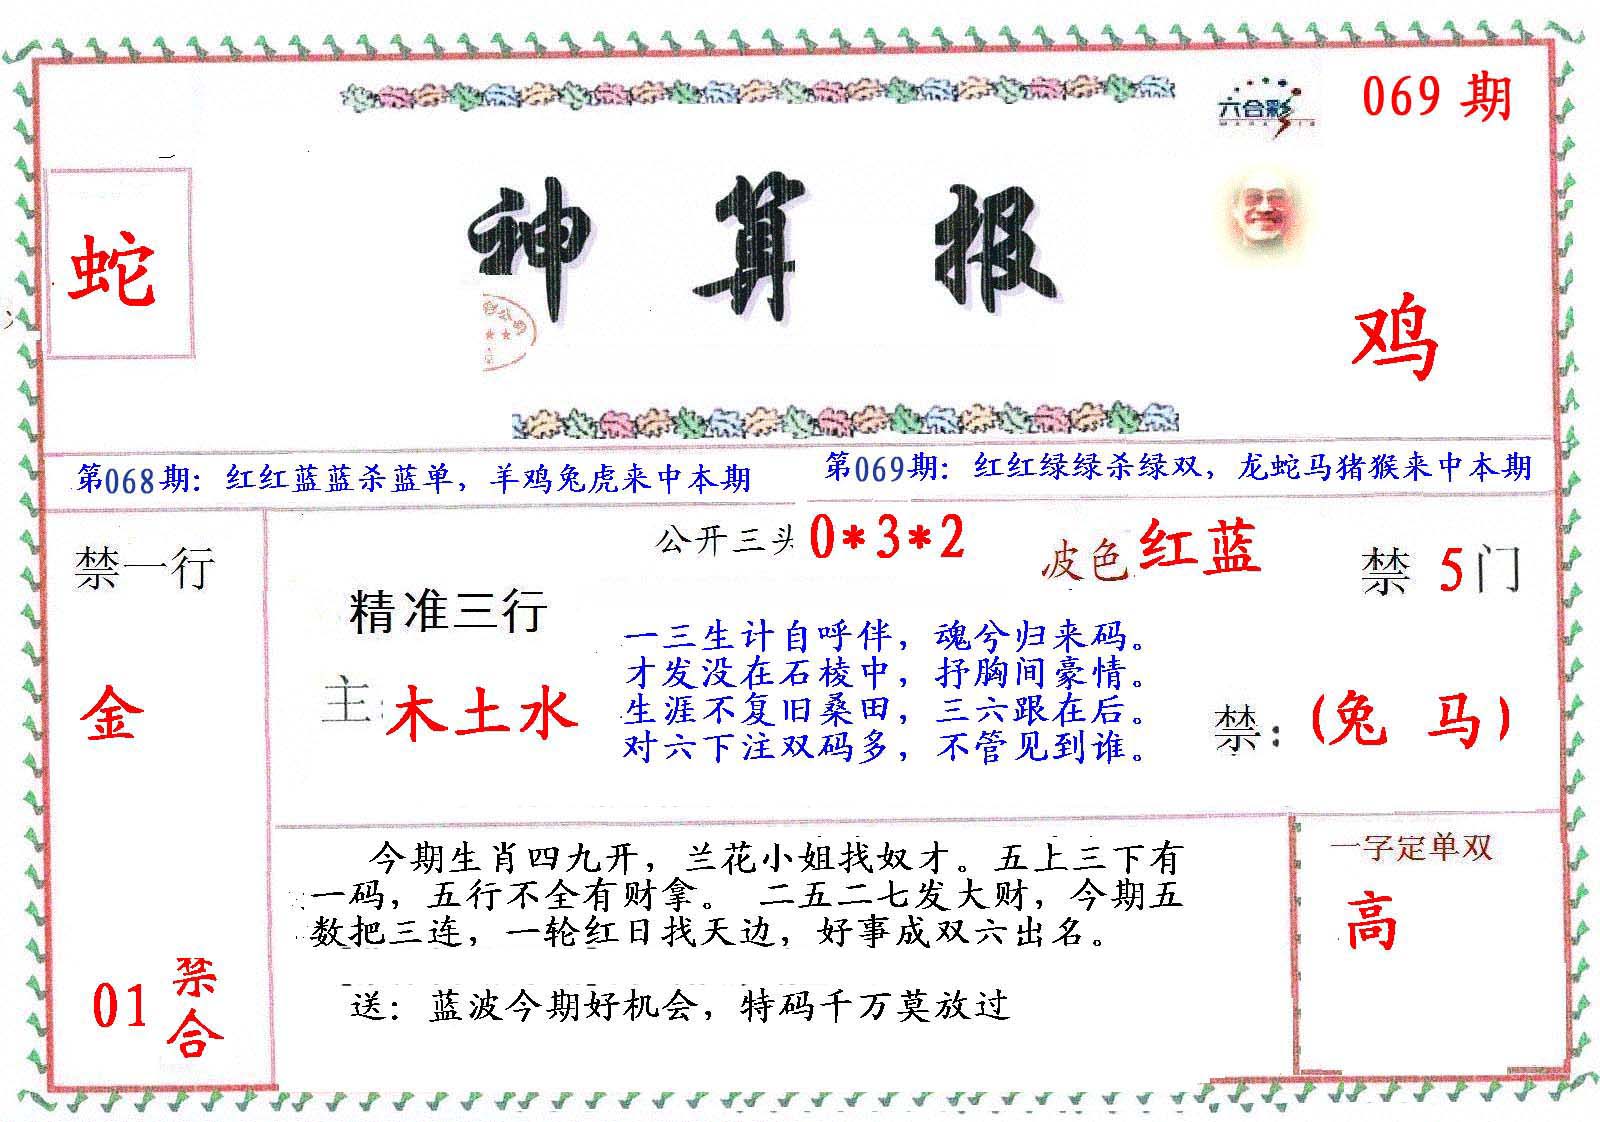 六合彩
069 期
蛇
神算报
鸡
第068期：红红蓝蓝杀蓝单，羊鸡兔虎来中本期
第069期：红红绿绿杀绿双，龙蛇马猪猴来中本期
禁一行
金
01 禁合
公开三头 0*3*2
波色 红蓝
禁 5 门
精准三行
主: 木土水
一三生计自呼伴，魂兮归来码。
才发没在石棱中，抒胸间豪情。
生涯不复旧桑田，三六跟在后。
对六下注双码多，不管见到谁。
禁: (兔 马)
今期生肖四九开，兰花小姐找奴才。五上三下有
一码，五行不全有财拿。 二五二七发大财，今期五
数把三连，一轮红日找天边，好事成双六出名。
送：蓝波今期好机会，特码千万莫放过
一字定单双
高